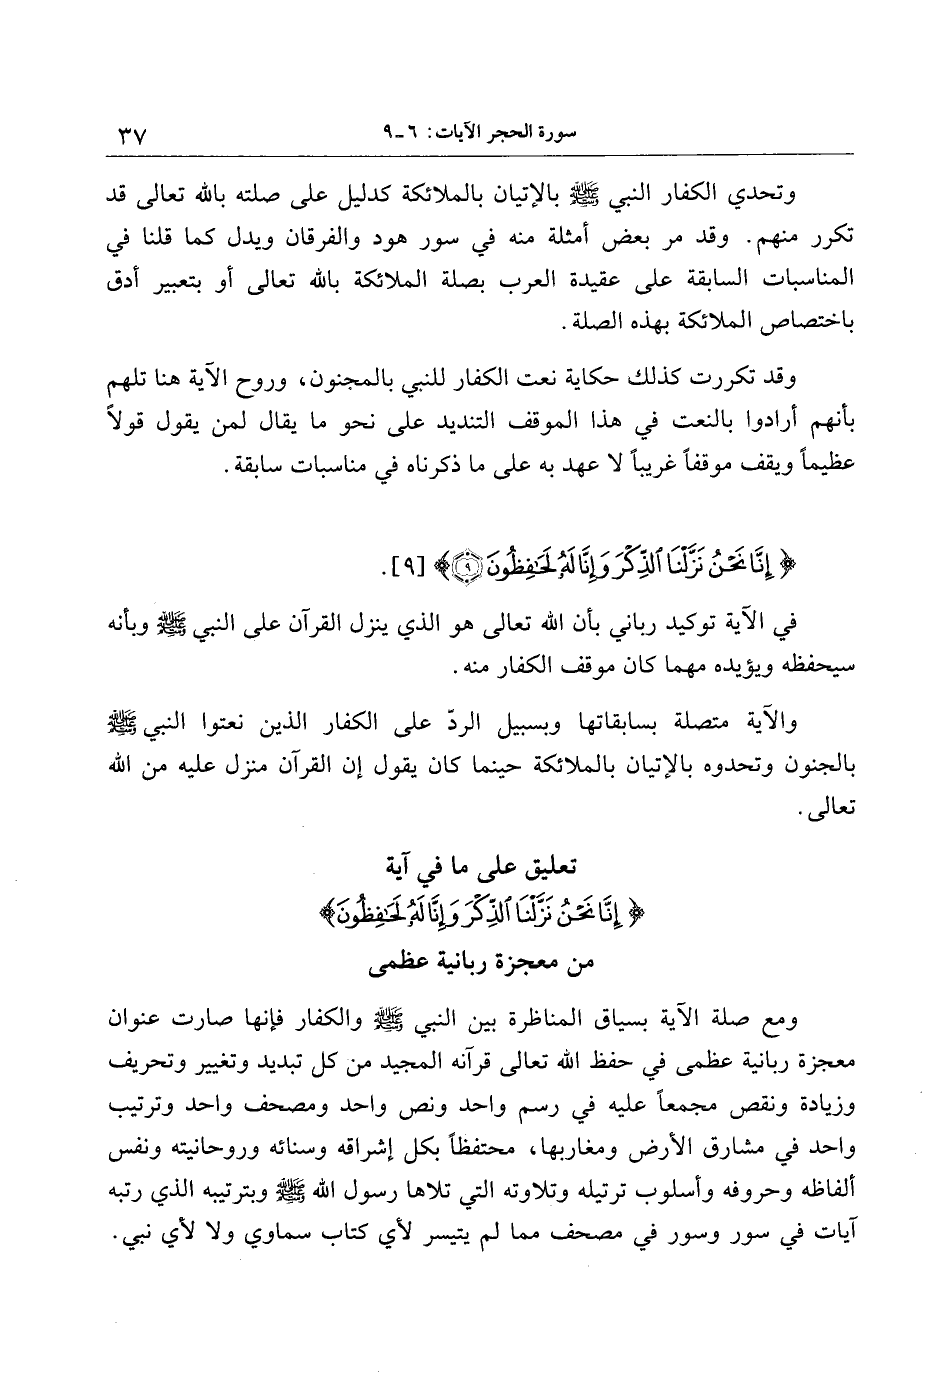 سورة الحجر الآيات: ٦-٩ ٣٧
وتحدي الكفار النبي ﷺ بالإتيان بالملائكة كدليل على صلته بالله تعالى قد
تكرر منهم. وقد مر بعض أمثلة منه في سور هود والفرقان ويدل كما قلنا في
المناسبات السابقة على عقيدة العرب بصلة الملائكة بالله تعالى أو بتعبير أدق
باختصاص الملائكة بهذه الصلة.
وقد تكررت كذلك حكاية نعت الكفار للنبي بالمجنون، وروح الآية هنا تلهم
بأنهم أرادوا بالنعت في هذا الموقف التنديد على نحو ما يقال لمن يقول قولاً
عظيماً ويقف موقفاً غريباً لا عهد به على ما ذكرناه في مناسبات سابقة.
﴿إِنَّا نَحْنُ نَزَّلْنَا ٱلذِّكْرَ وَإِنَّا لَهُۥ لَحَٰفِظُونَ ۝٩﴾ [٩].
في الآية توكيد رباني بأن الله تعالى هو الذي ينزل القرآن على النبي ﷺ وبأنه
سيحفظه ويؤيده مهما كان موقف الكفار منه.
والآية متصلة بسابقاتها وبسبيل الردّ على الكفار الذين نعتوا النبي ﷺ
بالجنون وتحدوه بالإتيان بالملائكة حينما كان يقول إن القرآن منزل عليه من الله
تعالى.
تعليق على ما في آية
﴿إِنَّا نَحْنُ نَزَّلْنَا ٱلذِّكْرَ وَإِنَّا لَهُۥ لَحَٰفِظُونَ﴾
من معجزة ربانية عظمى
ومع صلة الآية بسياق المناظرة بين النبي ﷺ والكفار فإنها صارت عنوان
معجزة ربانية عظمى في حفظ الله تعالى قرآنه المجيد من كل تبديد وتغيير وتحريف
وزيادة ونقص مجمعاً عليه في رسم واحد ونص واحد ومصحف واحد وترتيب
واحد في مشارق الأرض ومغاربها، محتفظاً بكل إشراقه وسنائه وروحانيته ونفس
ألفاظه وحروفه وأسلوب ترتيله وتلاوته التي تلاها رسول الله ﷺ وبترتيبه الذي رتبه
آيات في سور وسور في مصحف مما لم يتيسر لأي كتاب سماوي ولا لأي نبي.